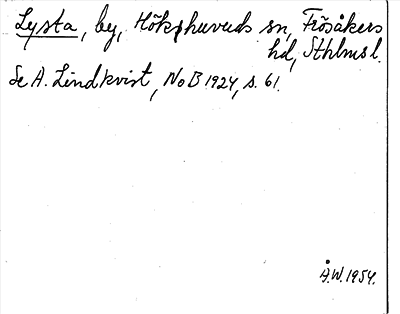 Lysta, by, Hökhuvuds sn, Frösåkers
hd, Sthlms l.
Se A. Lindkvist, NoB 1924, s. 61.
Å.W. 1954.